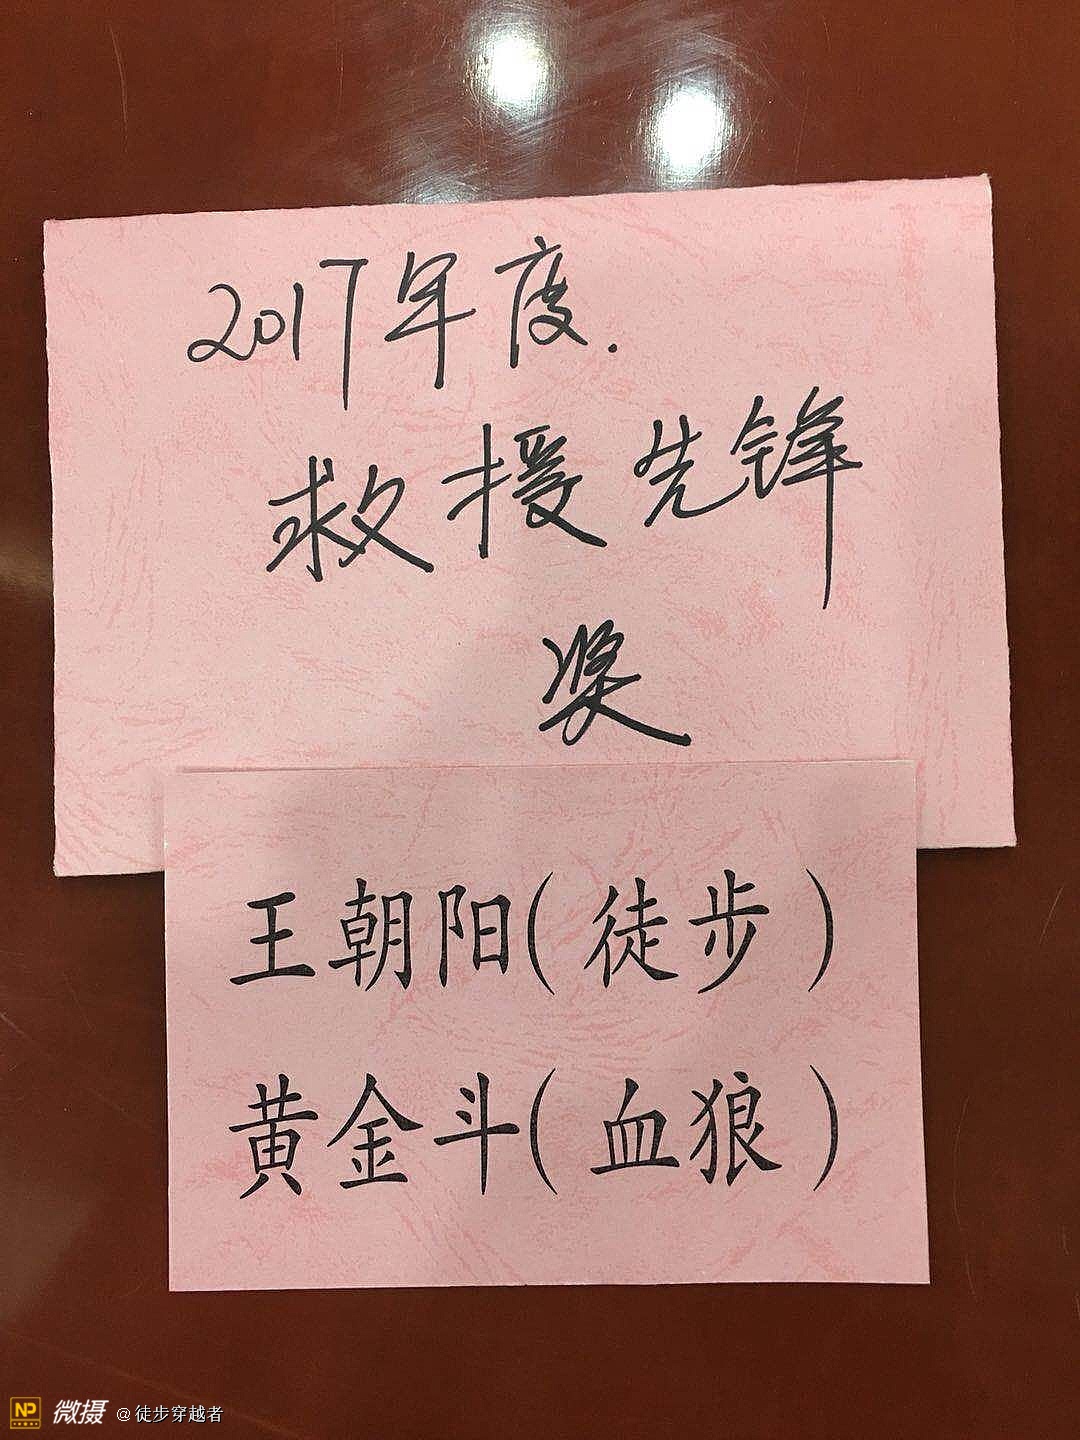 2017年度.
救援先锋
奖
王朝阳(徒步)
黄金斗(血狼)
NP 微摄 @徒步穿越者